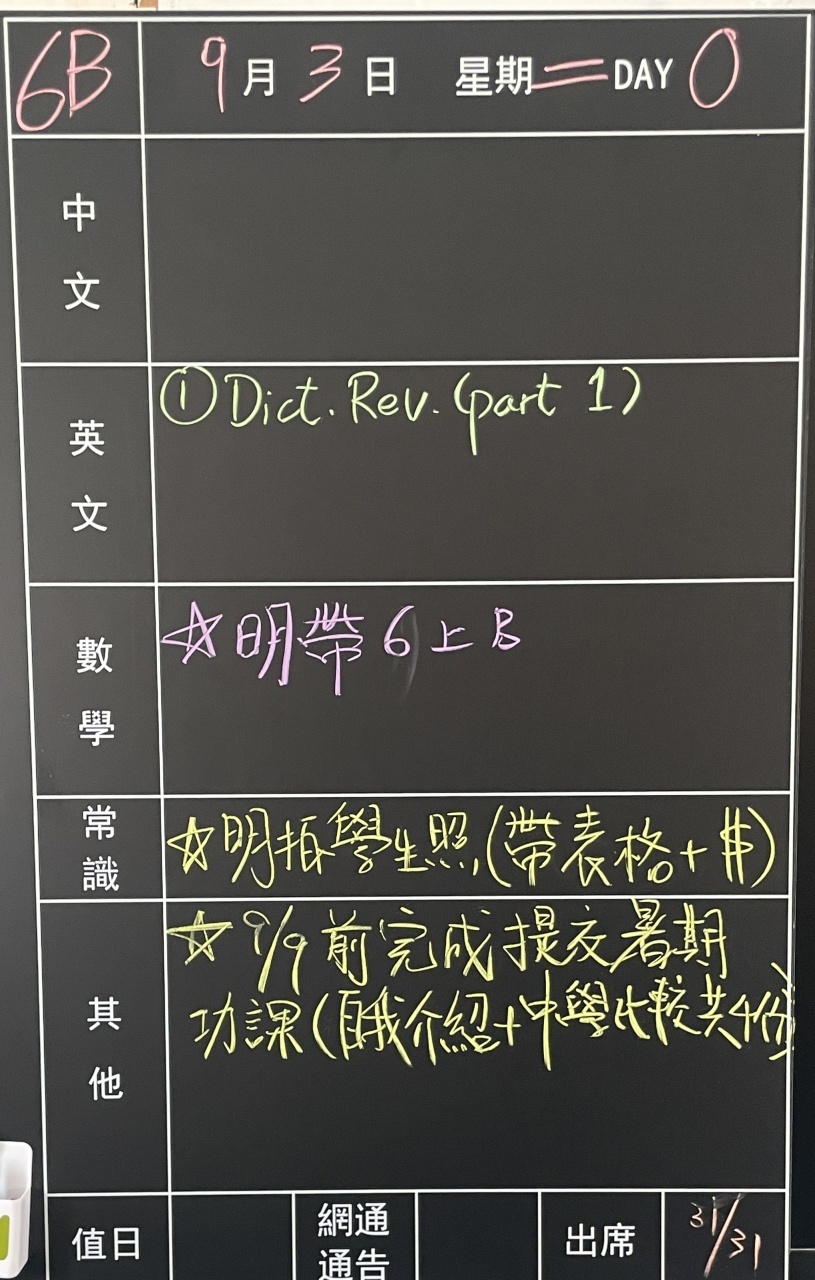 6B 9月3日 星期二 DAY 0
中文
① Dict. Rev. (part 1)
英文
☆明帶6上B
數學
☆明拍學生照(帶表格+$)
常識
☆9/9前完成提交暑期
功課(自我介紹+中學比較共4份)
其他
值日 網通通告 出席 31/31